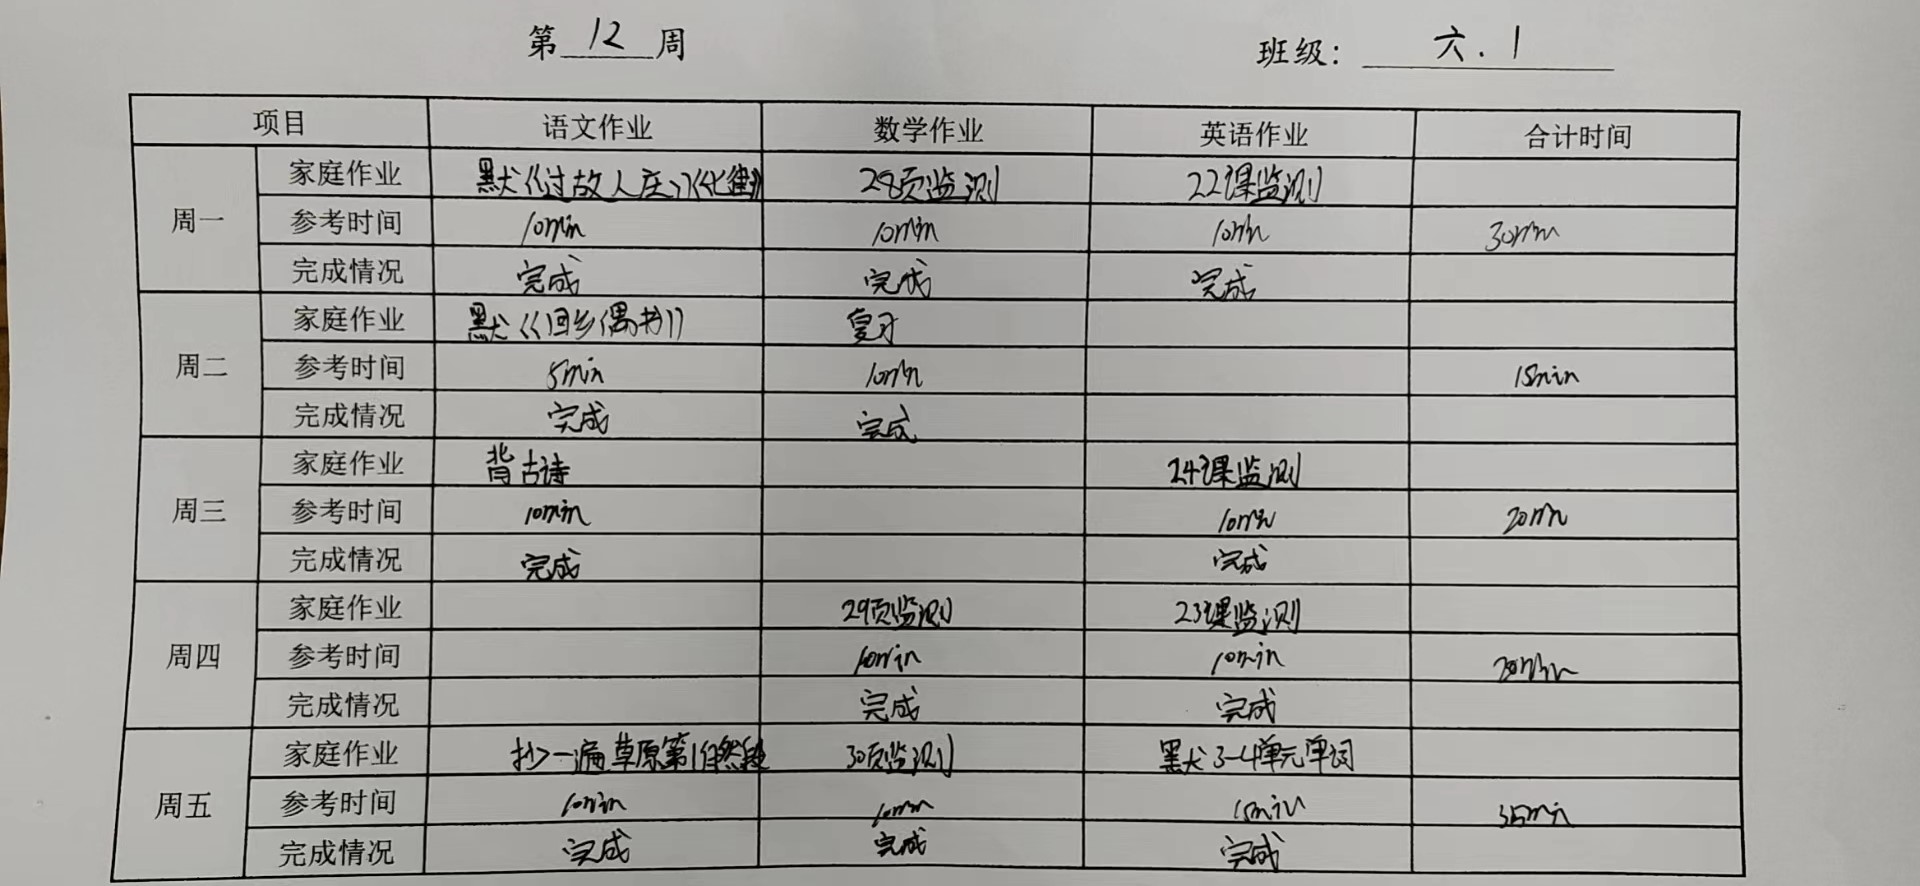 第 12 周 班级： 六.1
项目 语文作业 数学作业 英语作业 合计时间
周一 家庭作业 默《过故人庄》《七律》 28页监测 22课监测
参考时间 10min 10min 10min 30min
完成情况 完成 完成 完成
周二 家庭作业 默《回乡偶书》 复习
参考时间 5min 10min 15min
完成情况 完成 完成
周三 家庭作业 背古诗 24课监测
参考时间 10min 10min 20min
完成情况 完成 完成
周四 家庭作业 29页监测 23课监测
参考时间 10min 10min 20min
完成情况 完成 完成
周五 家庭作业 抄一遍草原第1自然段 30页监测 默3-4单元单词
参考时间 10min 10min 15min 35min
完成情况 完成 完成 完成